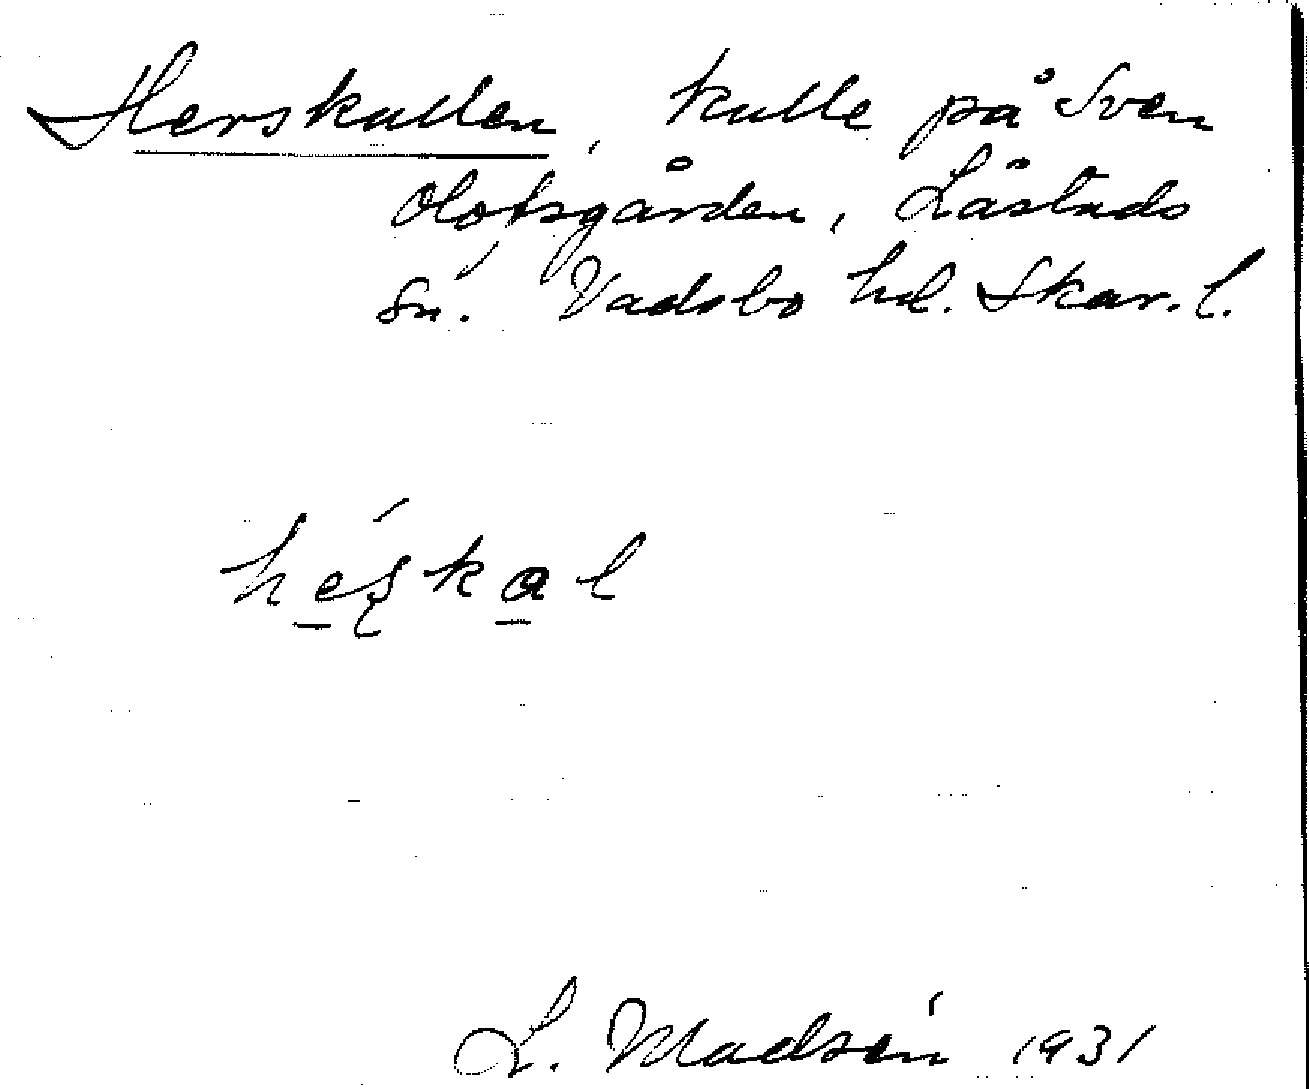 Herskullen, kulle på Sven
Olofsgården, Låstads
sn. Vadsbo hd. Skar. l.
L. Madsén 1931